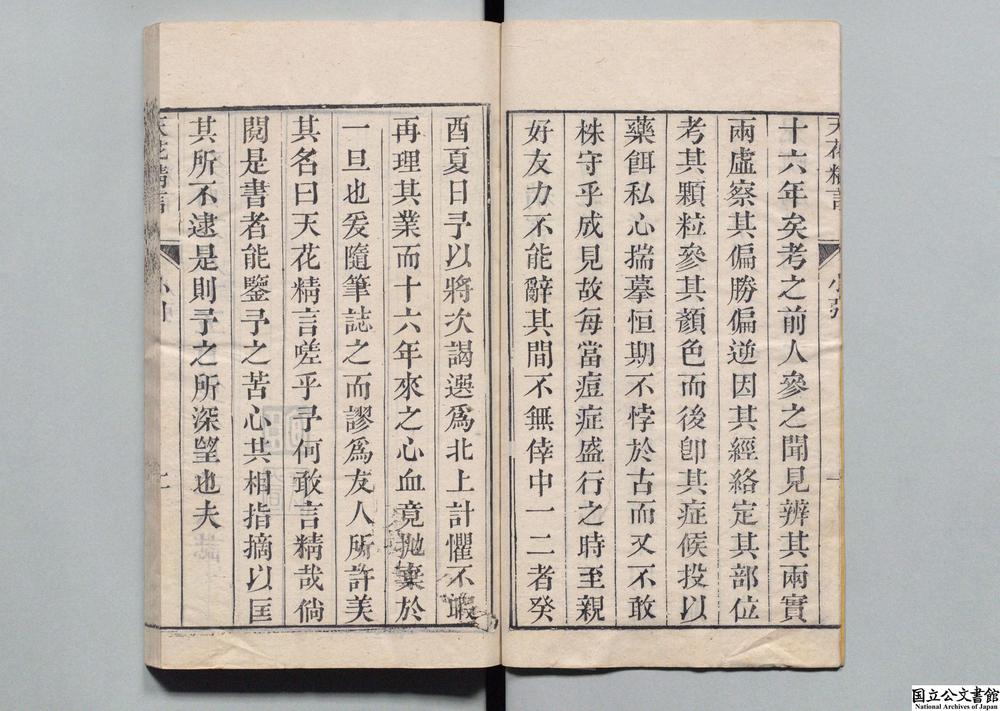 天花精言 小引
十六年矣考之前人參之聞見辨其兩實
兩虛察其偏勝偏逆因其經絡定其部位
考其顆粒參其顏色而後卽其症候投以
藥餌私心揣摹恒期不悖於古而又不敢
株守乎成見故每當痘症盛行之時至親
好友力不能辭其間不無倖中一二者癸
酉夏日予以將次謁選爲北上計懼不暇
再理其業而十六年來之心血竟拋棄於
一旦也爰隨筆誌之而謬爲友人所許美
其名曰天花精言嗟乎予何敢言精哉倘
閱是書者能鑒予之苦心共相指摘以匡
其所不逮是則予之所深望也夫
天花精言 小引
國立公文書館
National Archives of Japan